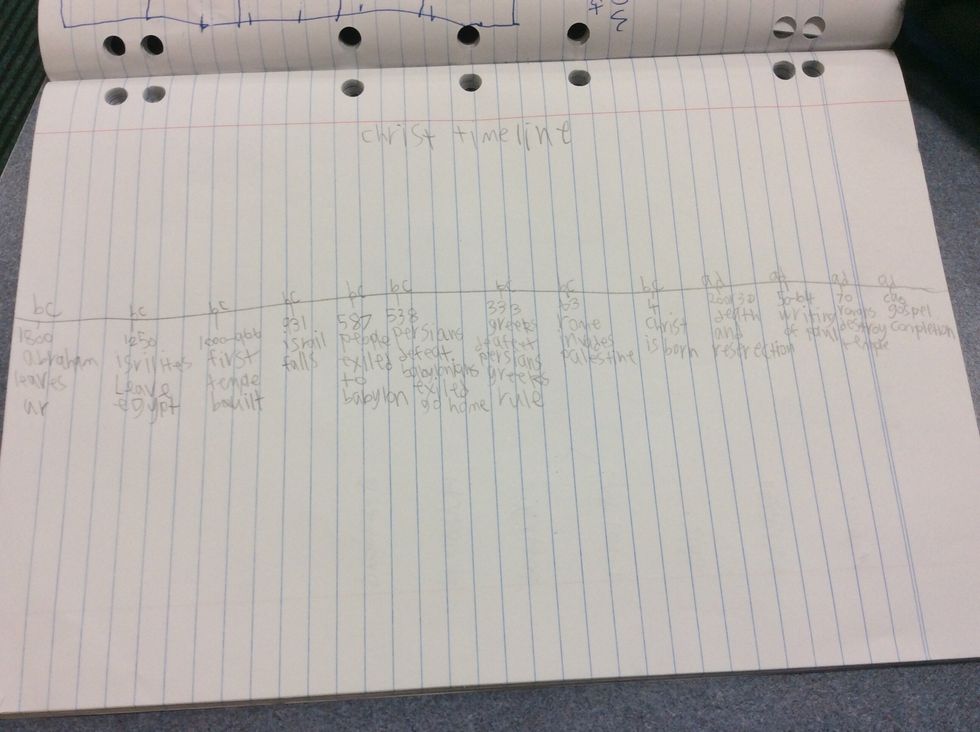 christ timeline
bc bc bc bc bc bc bc bc bc ad ad ad ad
1250 931 587 538 333 63 4 50-64 70
abraham leaves ur
isrilites leave egypt
first
israil falls
people exiled to babylon
persians defeat babylonians exiled go home
greeks defeat persians greeks rule
rome invades palestine
christ is born
death and resrection
writing of paul
romans destroy temple
gospel completion